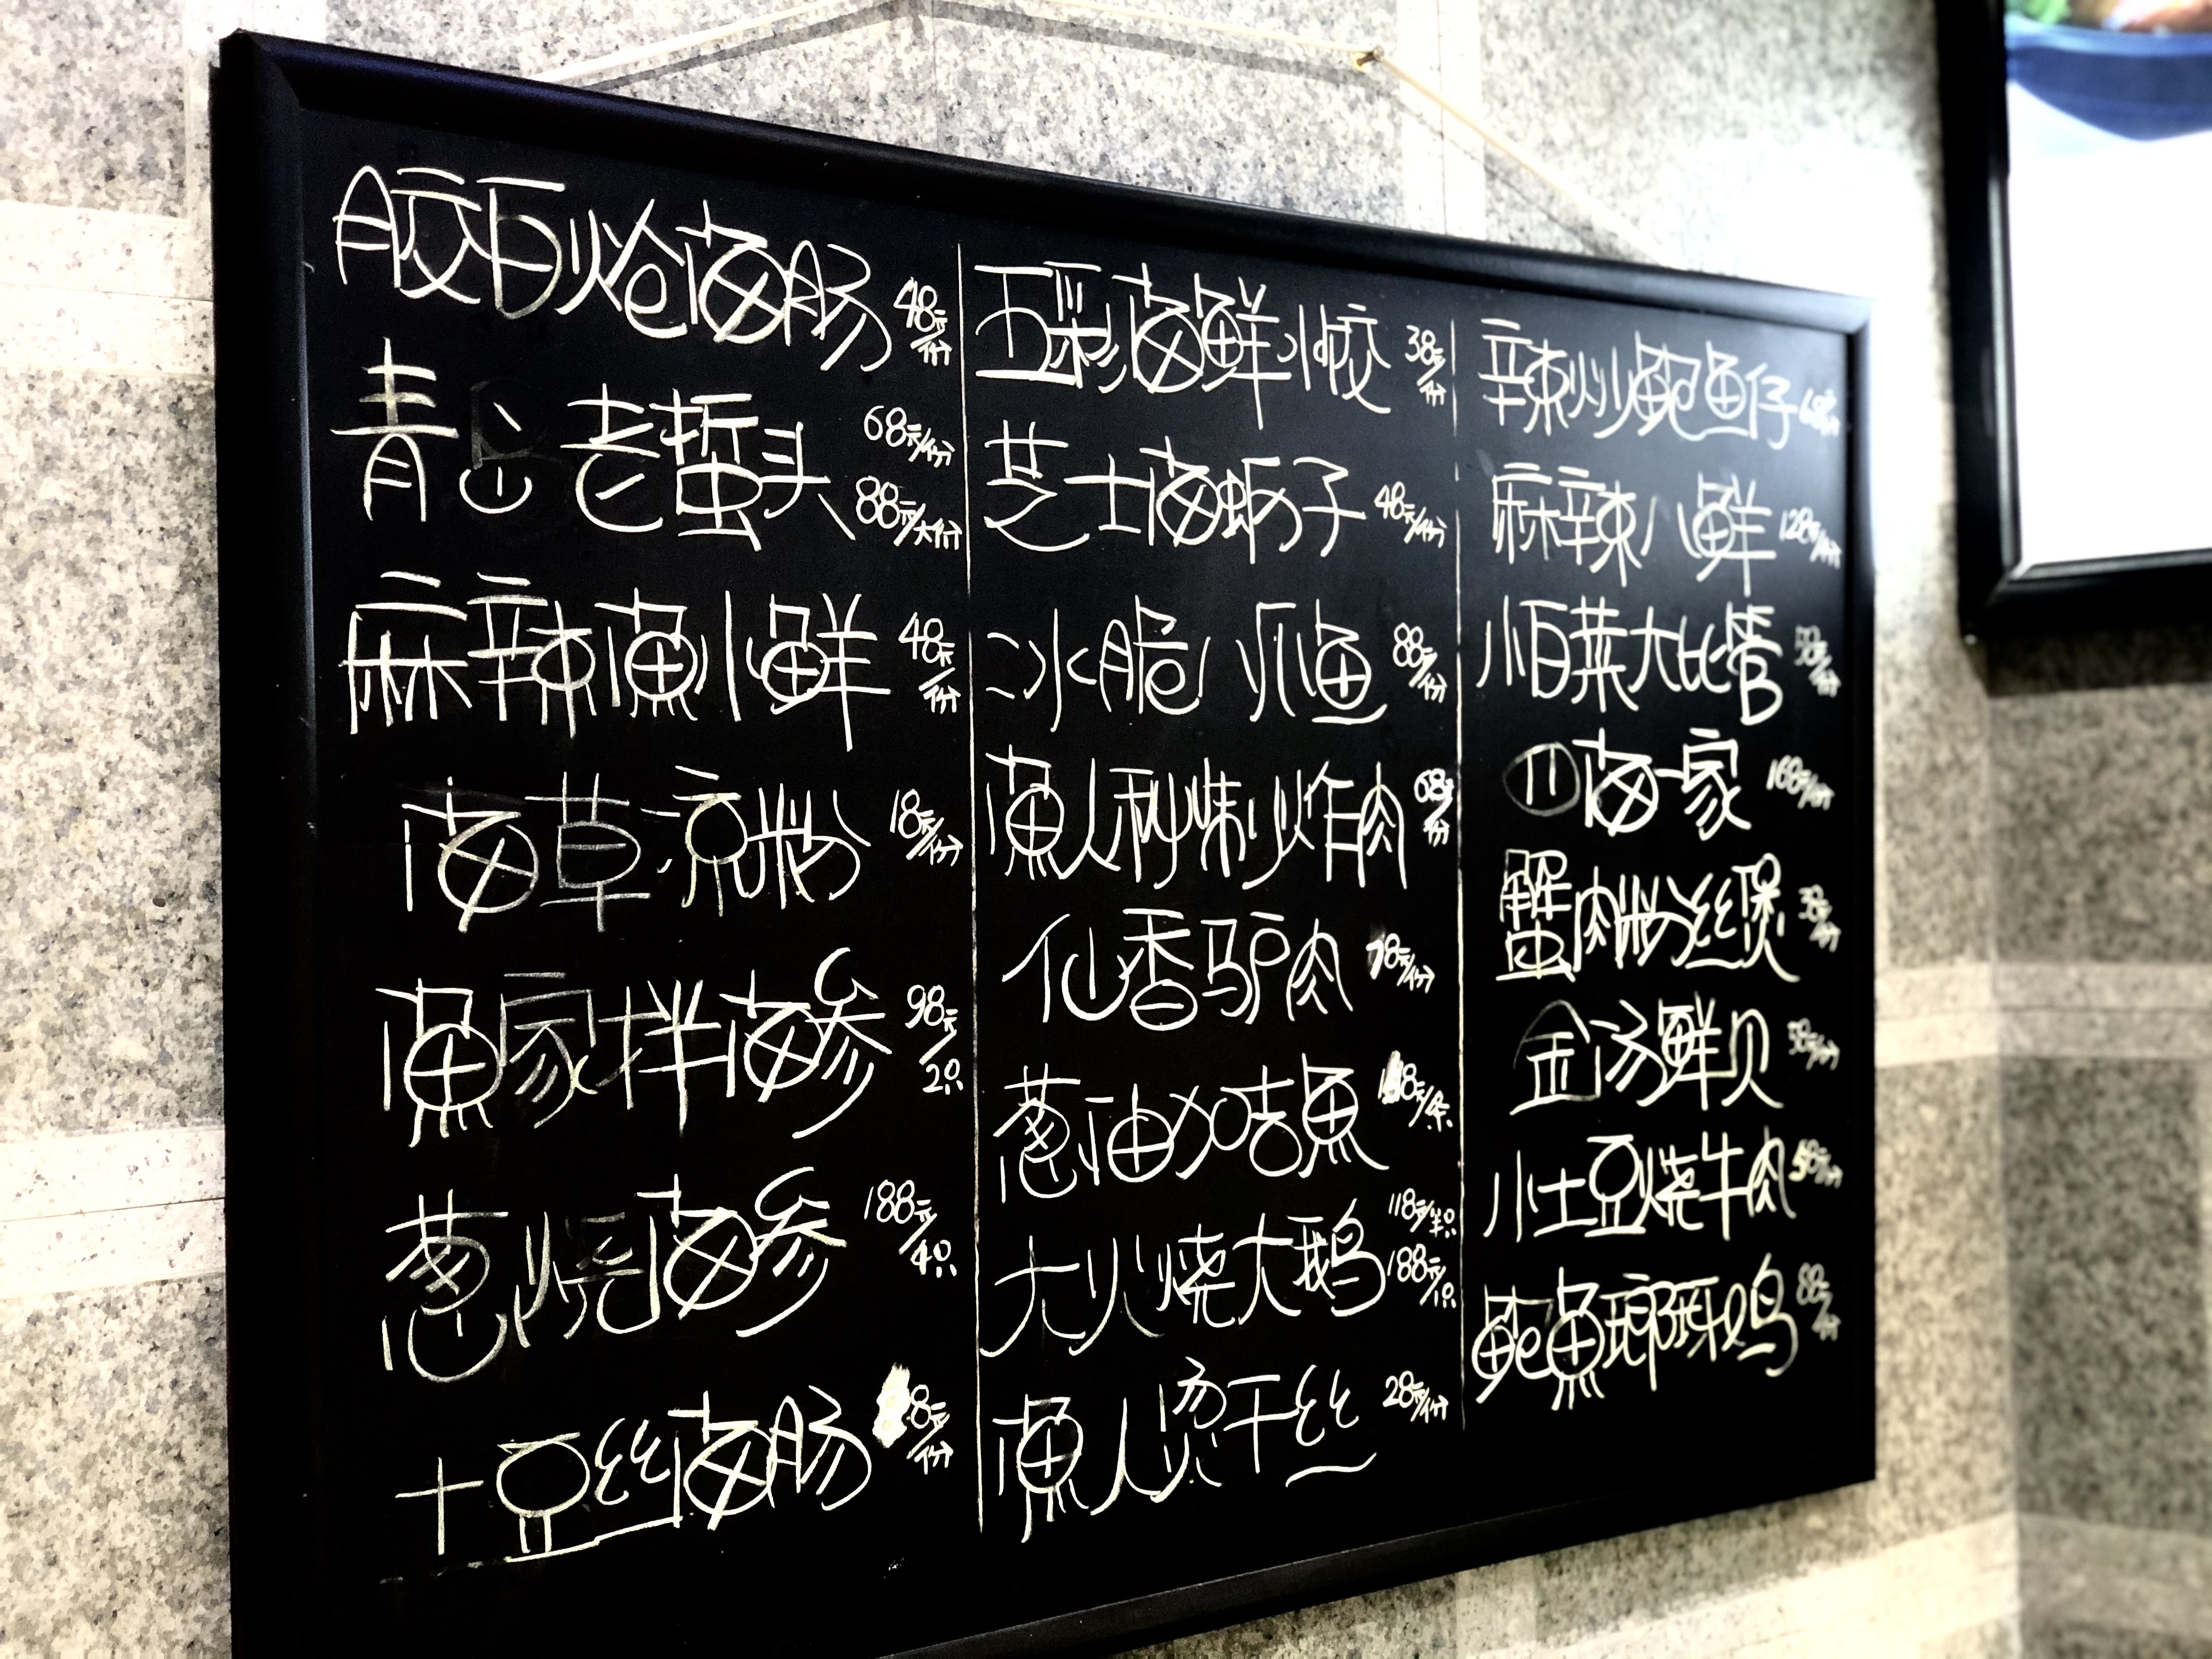 胶白炝海肠 48元/份
青 老蜇头 68元/份
88元/大份
麻辣渔小鲜 48元/份
海草凉粉 18元/份
渔家拌海参 98元/2只
葱烧海参 188元/4只
土豆丝海肠 8元/份
五彩海鲜水饺 38元/份
芝士海蛎子 48元/份
冰脆小爪鱼 88元/份
渔人秘制炸肉 68元/份
仙香驴肉 78元/份
葱油加吉鱼 8元/条
大火烧大鹅 118元/半只
188元/只
渔人烫干丝 28元/份
辣炒鲍鱼仔 68元/份
麻辣小鲜 128元/份
小白菜大比管
四海一家 168元/份
蟹肉粉丝煲 38元/份
金汤鲜贝 58元/份
小土豆烧牛肉 58元/份
鲍鱼琅琊鸡 88元/份